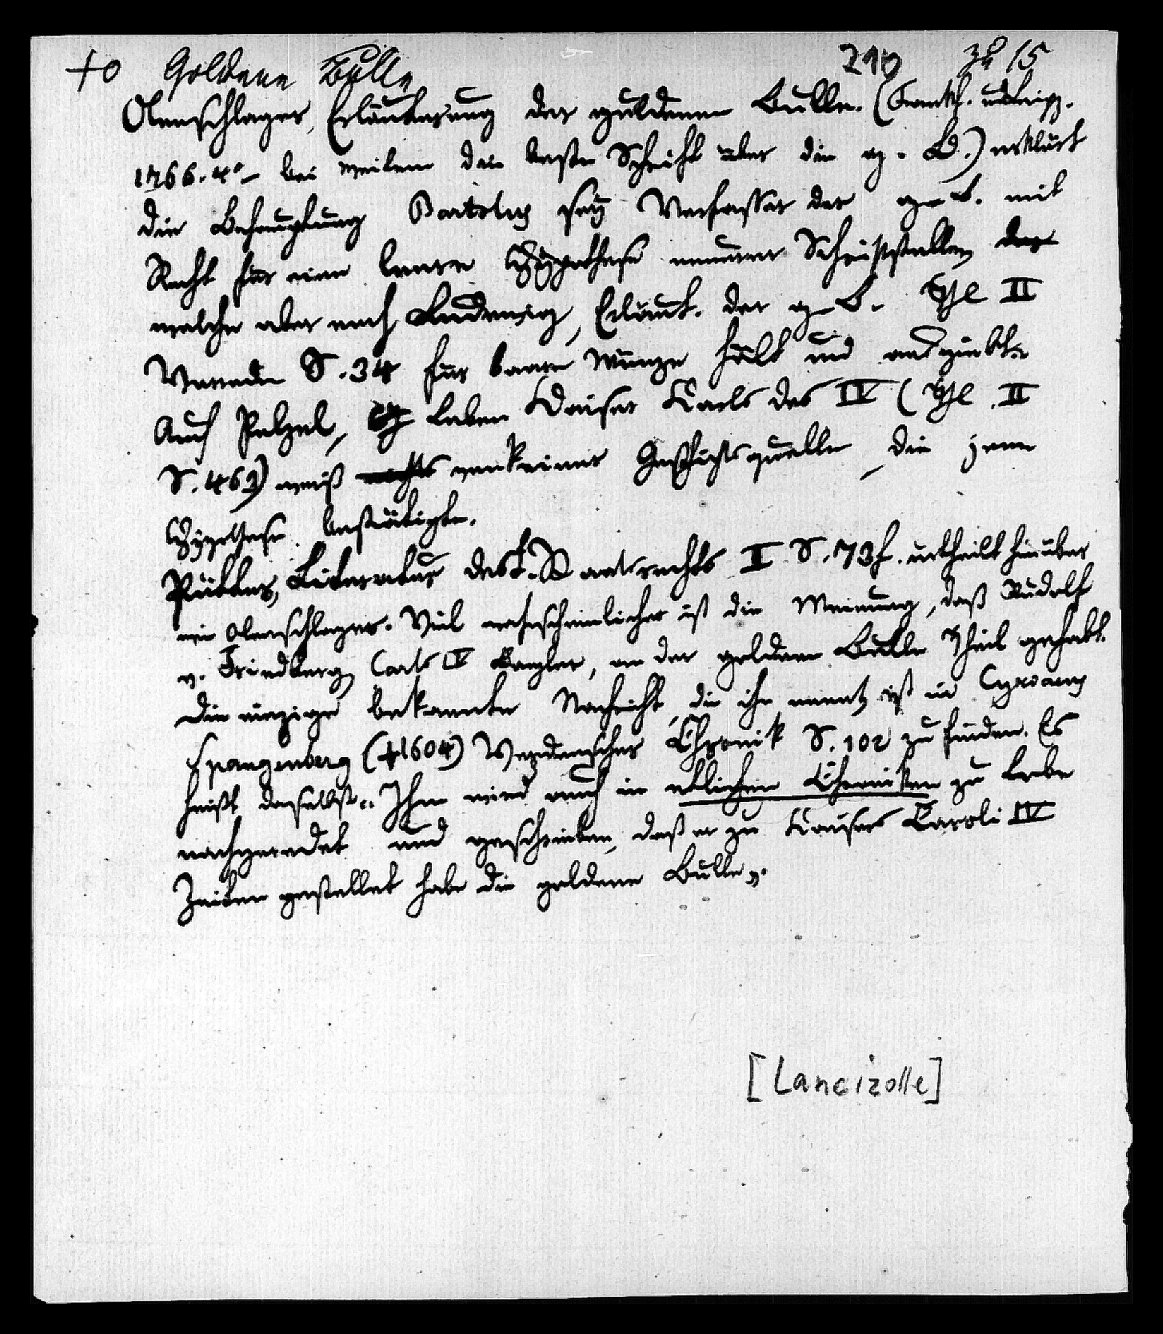 Goldene Bulle
Olenschlager, Erläuterung der guldenen Bulle. (Frankf. u Leipz.
1766. 4° – bei weitem die beste Schrift über die g. B.) erklärt
die Behauptung Bartolus sey Verfasser der g. B. mit
Recht für eine leere Hypothese neuerer Schriftsteller,
welche aber auch Ludewig, Erläut. der g. B. Thl II
Vorrede S. 34 für baare Münze hält und
Auch Pelzel, Leben Kaiser Karls des IV (Thl. II
S. 462) weiß von keiner Geschichtsquelle, die jene
Hypothese bestätigte.
Pütter, Literatur des t. Staatsrechts I S. 73f. urtheilt hierüber
wie Olenschlager. Viel wahrscheinlicher ist die Meinung, daß Rudolf
v. Friedberg, Carls IV Kanzler, an der goldenen Bulle Theil gehabt.
Die einzige bekannte Nachricht, die ihn nennt, ist in Cyriacus
Spangenberg (†1604) Verdenscher Chronik S. 102 zu finden. Es
heißt daselbst: Ihm wird auch in etlichen Chroniken zu Lobe
nachgeredet und geschrieben, daß er zu Kaisers Caroli IV
Zeiten gestellet habe die goldene Bulle
[Lancizolle]